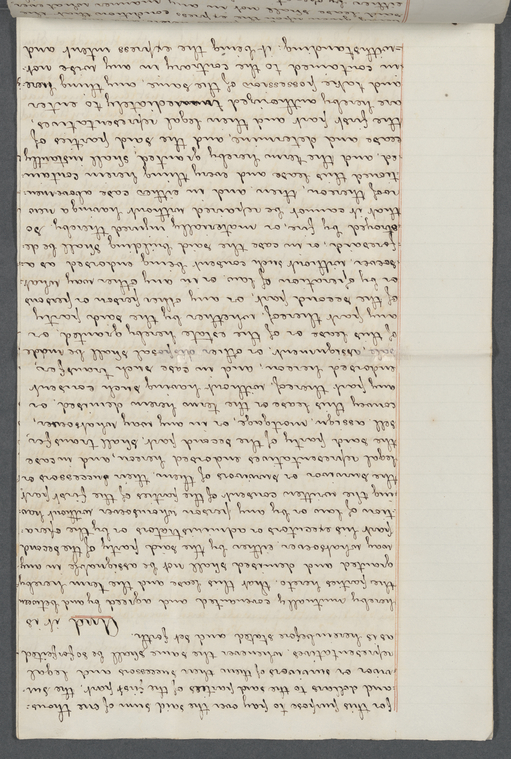 for this purpose to pay over the said sum of one thous-
and dollars to the said parties of the first part, the sur-
vivor or survivors of them their successors and legal
representatives, whenever the same shall be so forfeited,
as is hereinbefore stated and set forth.
And it is
hereby mutually covenanted and agreed by and between
the parties hereto, that this lease and the term hereby
granted and demised shall not be assignable in any
way whatsoever either by the said party of the second
part his executors or administrators or by the opera-
tion of law or by any person whomsoever without hav-
ing the written consent of the parties of the first part
the survivor or survivors of them, their successors or
legal representatives endorsed hereon, and in case
the said party of the second part shall transfer,
sell assign, mortgage, or in any way whatsoever,
convey this lease or the term herein demised, or
any part thereof, without having such consent
endorsed hereon, and in case such transfer
sale, assignment or other disposal shall be made
of this lease or of the estate hereby granted, or
of any part thereof, whether by the said party
of the second part, or any other person or persons
or by operation of law, or in any other way what-
soever, without such consent being endorsed as a-
foresaid, or in case the said building shall be de-
stroyed by fire, or materially injured thereby so
that it cannot be repaired without having a new
roof thereon, then and in either case abovemen-
tioned this lease and every thing herein contain-
ed, and the term hereby granted shall instantly
cease and determine, and the said parties of
the first part and their legal representatives,
are hereby authorized immediately to enter
and take possession of the same, any thing here-
in contained to the contrary in any wise not-
withstanding: it being the express intent and